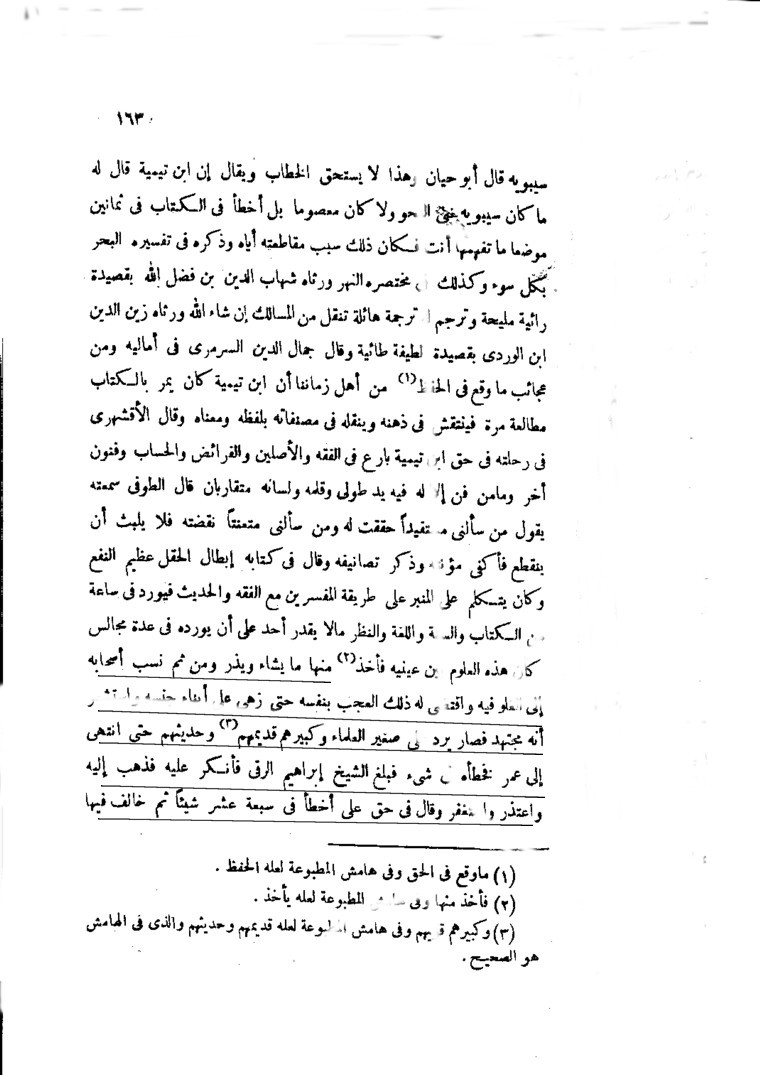 ١٦٣
سيبويه قال أبو حيان وهذا لا يستحق الخطاب ويقال إن ابن تيمية قال له
ما كان سيبويه ولا كان معصوما بل أخطأ فى الكتاب فى ثمانين
موضعا ما تفهمها أنت فكان ذلك سبب مقاطعته أياه وذكره فى تفسيره البحر
بكل سوء وكذلك مختصره النهر ورثاه شهاب الدين بن فضل الله بقصيدة
رائية مليحة وترجم ترجمة هائلة تنقل من المسالك إن شاء الله ورثاه زين الدين
ابن الوردى بقصيدة لطيفة طائية وقال جمال الدين السرمرى فى أماليه ومن
عجائب ما وقع فى الحفظ (١) من أهل زماننا أن ابن تيمية كان يمر بالكتاب
مطالعة مرة فينتقش فى ذهنه وينقله فى مصنفاته بلفظه ومعناه وقال الأقشهرى
فى رحلته فى حق ابن تيمية بارع فى الفقه والأصلين والفرائض والحساب وفنون
أخر ومامن فن إلا له فيه يد طولى وقلمه ولسانه متقاربان قال الطوفى سمعته
يقول من سألنى مستفيداً حققت له ومن سألنى متعنتاً نقضته فلا يلبث أن
ينقطع فأكفى مؤنته وذكر تصانيفه وقال فى كتابه إبطال الحقل عظيم النفع
وكان يتكلم على المنبر على طريقة المفسرين مع الفقه والحديث فيورد فى ساعة
من الكتاب والسنة واللغة والنظر مالا يقدر أحد على أن يورده فى عدة مجالس
كان هذه العلوم بين عينيه فأخذ (٢) منها ما يشاء ويذر ومن ثم نسب أصحابه
إلى الغلو فيه واقتضى له ذلك العجب بنفسه حتى زهى على أبناء جنسه واستشعر
أنه مجتهد فصار يرد على صغير العلماء وكبيرهم قديمهم (٣) وحديثهم حتى انتهى
إلى عمر فخطأه فى شىء فبلغ الشيخ إبراهيم الرقى فأنكر عليه فذهب إليه
واعتذر واستغفر وقال فى حق على أخطأ فى سبعة عشر شيئاً ثم خالف فيها
(١) ماوقع فى الحق وفى هامش المطبوعة لعله الحفظ .
(٢) فأخذ منها وفى هامش المطبوعة لعله يأخذ .
(٣) وكبيرهم وفى هامش المطبوعة لعله قديمهم وحديثهم والذى فى الهامش
هو الصحيح .